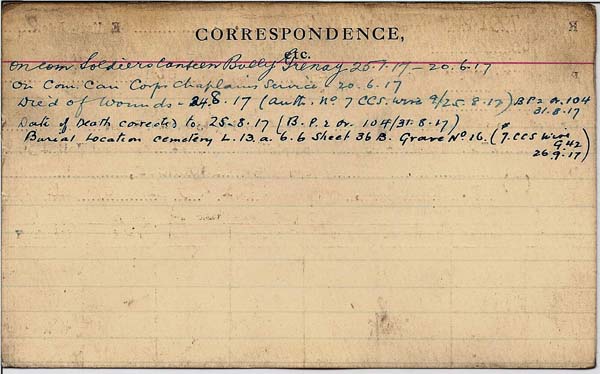 CORRESPONDENCE,
etc.
On com Soldiers Canteen Bully Grenay 25.1.17 – 20.6.17
On Com. Can Corps Chaplains Service 20.6.17
Died of Wounds – 24.8.17 (Auth. No 7 CCS. wire 9/25.8.17) B.P.2 Or. 104
31.8.17
Date of Death corrected to 25.8.17 (B.P. 2 Or. 104/31.8.17)
Burial Location cemetery L.13.a.6.6 Sheet 36 B. Grave No 16. (7. CCS Wire
G.42
26.9.17)